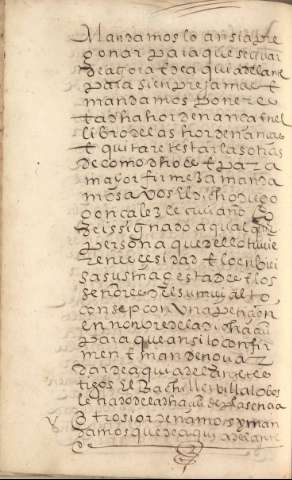 Mandamos lo ansi a pre
gonar para que se guar
de agora e de aqui adelante
para sienpre jamas e
mandamos poner es
ta dha hordenança en el
libro de las hordenanças
e quitar e testar las otras
de como dho es e para
mayor firmeza manda
mos a vos el dicho diego
gonçalez escrivano lo
deis signado a qual quier
persona que dello tuvie
re necesidad e lo enbie
a su magestad e a los
señores de su muy alto
consejo con una petiçion
en nonbre de la dicha
para que ansi lo confir
men e manden
dar de aqui adelante tes
tigos El Bachiller villalobos
letrado de la dha de plasençia
otrosi ordenamos y man
damos que de aqui adelante